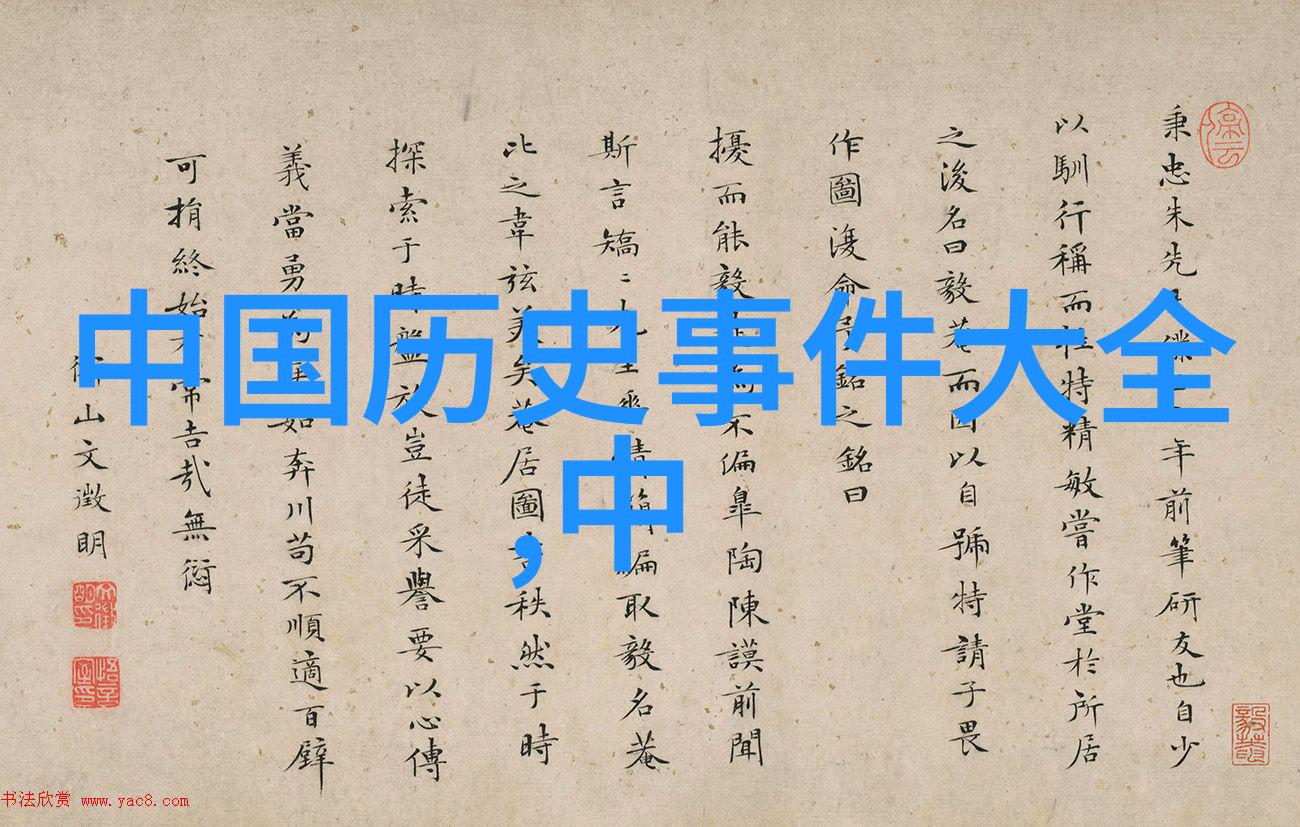 中国历史事件大全
,中
秉忠朱先年前筆研友也自少
以馴行稱而性特精敏嘗作堂於所居
之後名曰毅菴而因以自號特請子畏
作圖復命予銘之銘曰
擾而能毅不偏皐陶陳謨前聞
斯言矯〻九編取毅名菴
比之韋弦美矣菴居圖書秩然于時
探索于時盤於豈徒采譽要以心傳
義當勇為如奔川苟不順適百
可捐終始有常吉哉無愆
衡山文徵明
书法欣赏 www.yac8.com